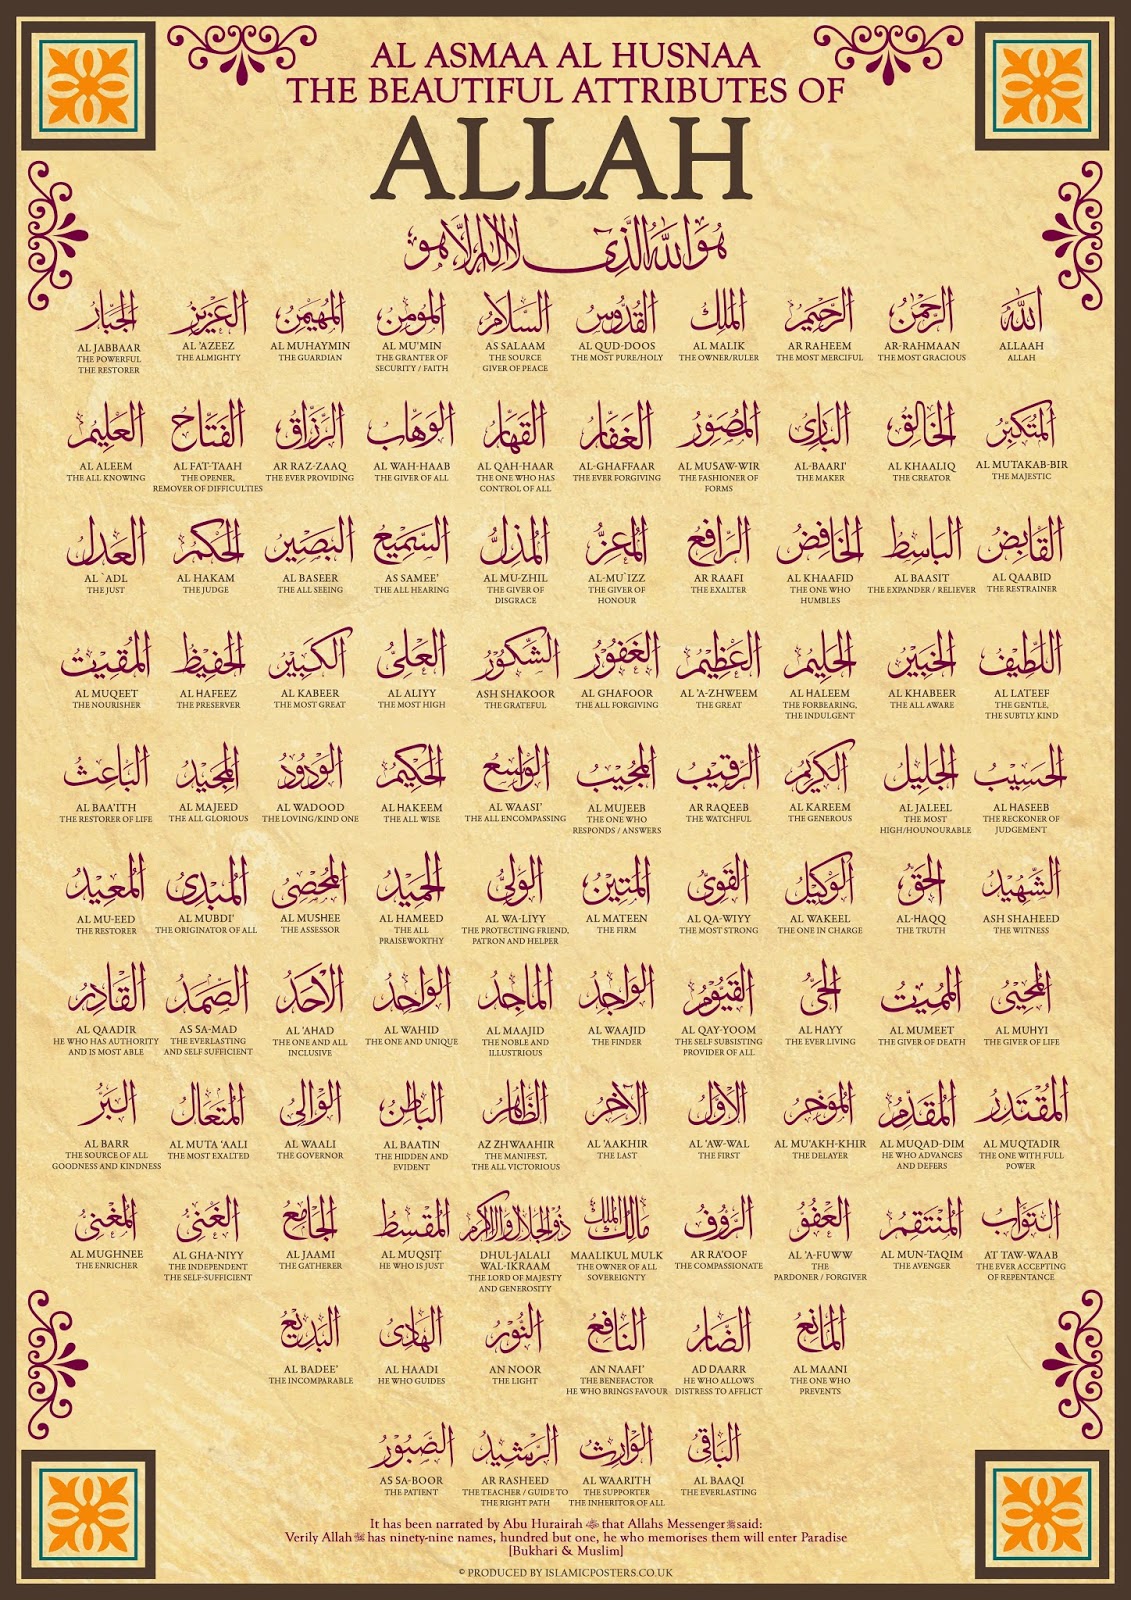 AL ASMAA AL HUSNAA
THE BEAUTIFUL ATTRIBUTES OF
ALLAH
هو الله الذي لا إله إلا هو
الله
ALLAAH
ALLAH
الرحمن
AR-RAHMAAN
THE MOST GRACIOUS
الرحيم
AR RAHEEM
THE MOST MERCIFUL
الملك
AL MALIK
THE OWNER/RULER
القدوس
AL QUD-DOOS
THE MOST PURE/HOLY
السلام
AS SALAAM
THE SOURCE
GIVER OF PEACE
المؤمن
AL MU'MIN
THE GRANTER OF
SECURITY / FAITH
المهيمن
AL MUHAYMIN
THE GUARDIAN
العزيز
AL 'AZEEZ
THE ALMIGHTY
الجبار
AL JABBAAR
THE POWERFUL
THE RESTORER
المتكبر
AL MUTAKAB-BIR
THE MAJESTIC
الخالق
AL KHAALIQ
THE CREATOR
البارئ
AL-BAARI'
THE MAKER
المصور
AL MUSAW-WIR
THE FASHIONER OF
FORMS
الغفار
AL-GHAFFAAR
THE EVER FORGIVING
القهار
AL QAH-HAAR
THE ONE WHO HAS
CONTROL OF ALL
الوهاب
AL WAH-HAAB
THE GIVER OF ALL
الرزاق
AR RAZ-ZAAQ
THE EVER PROVIDING
الفتاح
AL FAT-TAAH
THE OPENER,
REMOVER OF DIFFICULTIES
العليم
AL ALEEM
THE ALL KNOWING
القابض
AL QAABID
THE RESTRAINER
الباسط
AL BAASIT
THE EXPANDER / RELIEVER
الخافض
AL KHAAFID
THE ONE WHO
HUMBLES
الرافع
AR RAAFI
THE EXALTER
المعز
AL-MU`IZZ
THE GIVER OF
HONOUR
المذل
AL MU-ZHIL
THE GIVER OF
DISGRACE
السميع
AS SAMEE'
THE ALL HEARING
البصير
AL BASEER
THE ALL SEEING
الحكم
AL HAKAM
THE JUDGE
العدل
AL `ADL
THE JUST
اللطيف
AL LATEEF
THE GENTLE,
THE SUBTLY KIND
الخبير
AL KHABEER
THE ALL AWARE
الحليم
AL HALEEM
THE FORBEARING,
THE INDULGENT
العظيم
AL 'A-ZHWEEM
THE GREAT
الغفور
AL GHAFOOR
THE ALL FORGIVING
الشكور
ASH SHAKOOR
THE GRATEFUL
العلي
AL ALIYY
THE MOST HIGH
الكبير
AL KABEER
THE MOST GREAT
الحفيظ
AL HAFEEZ
THE PRESERVER
المقيت
AL MUQEET
THE NOURISHER
الحسيب
AL HASEEB
THE RECKONER OF
JUDGEMENT
الجليل
AL JALEEL
THE MOST
HIGH/HOUNOURABLE
الكريم
AL KAREEM
THE GENEROUS
الرقيب
AR RAQEEB
THE WATCHFUL
المجيب
AL MUJEEB
THE ONE WHO
RESPONDS / ANSWERS
الواسع
AL WAASI'
THE ALL ENCOMPASSING
الحكيم
AL HAKEEM
THE ALL WISE
الودود
AL WADOOD
THE LOVING/KIND ONE
المجيد
AL MAJEED
THE ALL GLORIOUS
الباعث
AL BAA'ITH
THE RESTORER OF LIFE
الشهيد
ASH SHAHEED
THE WITNESS
الحق
AL-HAQQ
THE TRUTH
الوكيل
AL WAKEEL
THE ONE IN CHARGE
القوي
AL QA-WIYY
THE MOST STRONG
المتين
AL MATEEN
THE FIRM
الولي
AL WA-LIYY
THE PROTECTING FRIEND,
PATRON AND HELPER
الحميد
AL HAMEED
THE ALL
PRAISEWORTHY
المحصي
AL MUSHEE
THE ASSESSOR
المبدئ
AL MUBDI'
THE ORIGINATOR OF ALL
المعيد
AL MU-EED
THE RESTORER
المحيي
AL MUHYI
THE GIVER OF LIFE
المميت
AL MUMEET
THE GIVER OF DEATH
الحي
AL HAYY
THE EVER LIVING
القيوم
AL QAY-YOOM
THE SELF SUBSISTING
PROVIDER OF ALL
الواجد
AL WAAJID
THE FINDER
الماجد
AL MAAJID
THE NOBLE AND
ILLUSTRIOUS
الواحد
AL WAHID
THE ONE AND UNIQUE
الأحد
AL 'AHAD
THE ONE AND ALL
INCLUSIVE
الصمد
AS SA-MAD
THE EVERLASTING
AND SELF SUFFICIENT
القادر
AL QAADIR
HE WHO HAS AUTHORITY
AND IS MOST ABLE
المقتدر
AL MUQTADIR
THE ONE WITH FULL
POWER
المقدم
AL MUQAD-DIM
HE WHO ADVANCES
AND DEFERS
المؤخر
AL MU'AKH-KHIR
THE DELAYER
الأول
AL 'AW-WAL
THE FIRST
الآخر
AL 'AAKHIR
THE LAST
الظاهر
AZ ZHWAAHIR
THE MANIFEST,
THE ALL VICTORIOUS
الباطن
AL BAATIN
THE HIDDEN AND
EVIDENT
الوالي
AL WAALI
THE GOVERNOR
المتعال
AL MUTA 'AALI
THE MOST EXALTED
البر
AL BARR
THE SOURCE OF ALL
GOODNESS AND KINDNESS
التواب
AT TAW-WAAB
THE EVER ACCEPTING
OF REPENTANCE
المنتقم
AL MUN-TAQIM
THE AVENGER
العفو
AL 'A-FUWW
THE
PARDONER / FORGIVER
الرؤوف
AR RA'OOF
THE COMPASSIONATE
مالك الملك
MAALIKUL MULK
THE OWNER OF ALL
SOVEREIGNTY
ذو الجلال والإكرام
DHUL-JALALI
WAL-IKRAAM
THE LORD OF MAJESTY
AND GENEROSITY
المقسط
AL MUQSIT
HE WHO IS JUST
الجامع
AL JAAMI
THE GATHERER
الغني
AL GHA-NIYY
THE INDEPENDENT
THE SELF-SUFFICIENT
المغني
AL MUGHNEE
THE ENRICHER
المانع
AL MAANI
THE ONE WHO
PREVENTS
الضار
AD DAARR
HE WHO ALLOWS
DISTRESS TO AFFLICT
النافع
AN NAAFI'
THE BENEFACTOR
HE WHO BRINGS FAVOUR
النور
AN NOOR
THE LIGHT
الهادي
AL HAADI
HE WHO GUIDES
البديع
AL BADEE'
THE INCOMPARABLE
الباقي
AL BAAQI
THE EVERLASTING
الوارث
AL WAARITH
THE SUPPORTER
THE INHERITOR OF ALL
الرشيد
AR RASHEED
THE TEACHER / GUIDE TO
THE RIGHT PATH
الصبور
AS SA-BOOR
THE PATIENT
It has been narrated by Abu Hurairah that Allahs Messenger ﷺ said:
Verily Allah has ninety-nine names, hundred but one, he who memorises them will enter Paradise
[Bukhari & Muslim]
© PRODUCED BY ISLAMICPOSTERS.CO.UK